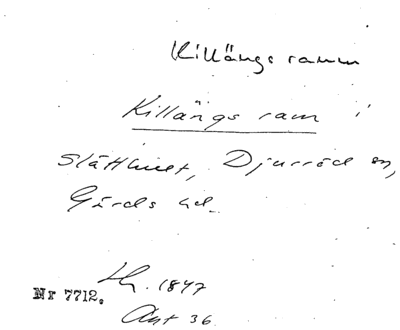 Killängs ramm
Killängs ram i
Slätthult, Djurröd sn,
Gärds hd.
1847
Nr 7712.
Ant 36